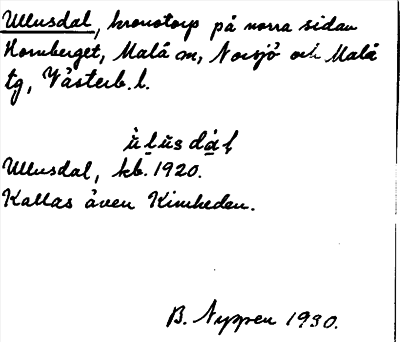 Ullusdal, kronotorp på norra sidan
Hornberget, Malå sn, Norsjö och Malå
tg, Västerb. l.
ù̀lusdáḷ
Ullusdal, kb. 1920.
Kallas även Kimheden.
B. Nyppen 1930.